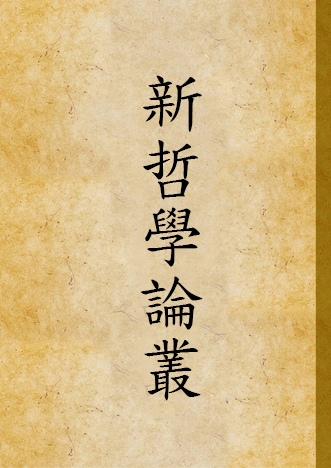 新哲學論叢